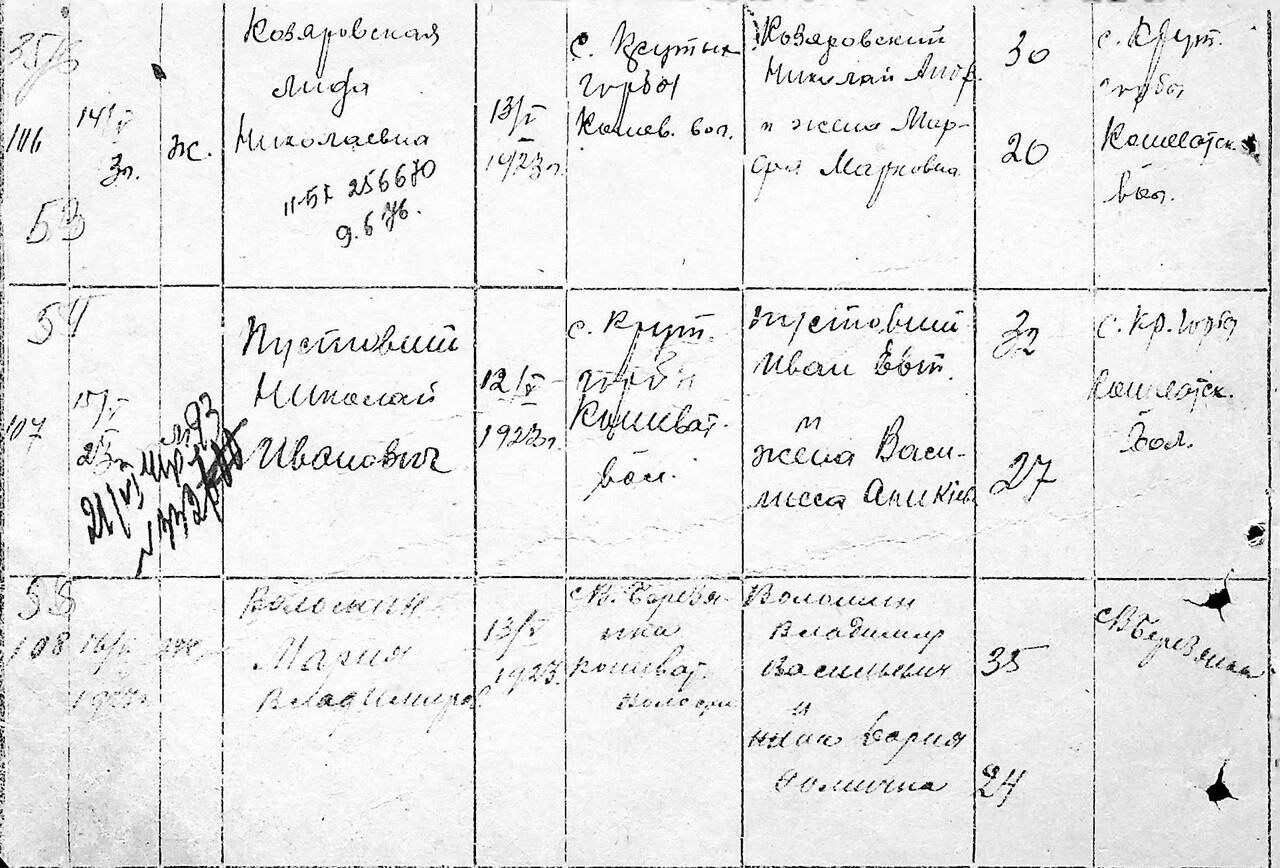 106
53
14/V
3г.
ж.
Козяровская
Лида
Николаевна
II-БК 256670
9.6.76.
13/V
1923г.
с. Крутые
горбы
Кошев. вол.
Козяровский
Николай Андр.
и жена Мар-
фа Марковна
30
20
с. Крут.
горбы
Кошеватск.
вол.
54
107
15/V
23г.
Пустовий
Николай
Иванович
12/V
1923г.
с. Крут.
горбы
Кошеват.
вол.
Пустовий
Иван Евт.
и
жена Васи-
лисса Аникіев.
32
27
с. Кр. Горбы
Кошеватск.
вол.
55
108
16/V
1923г.
Волошин
Мария
Владимиров.
13/V
1923г.
с. В. Березя-
нка
Кошеват.
волости
Волошин
Владимир
Васильевич
и
жена
35
24
с. В. Березянка